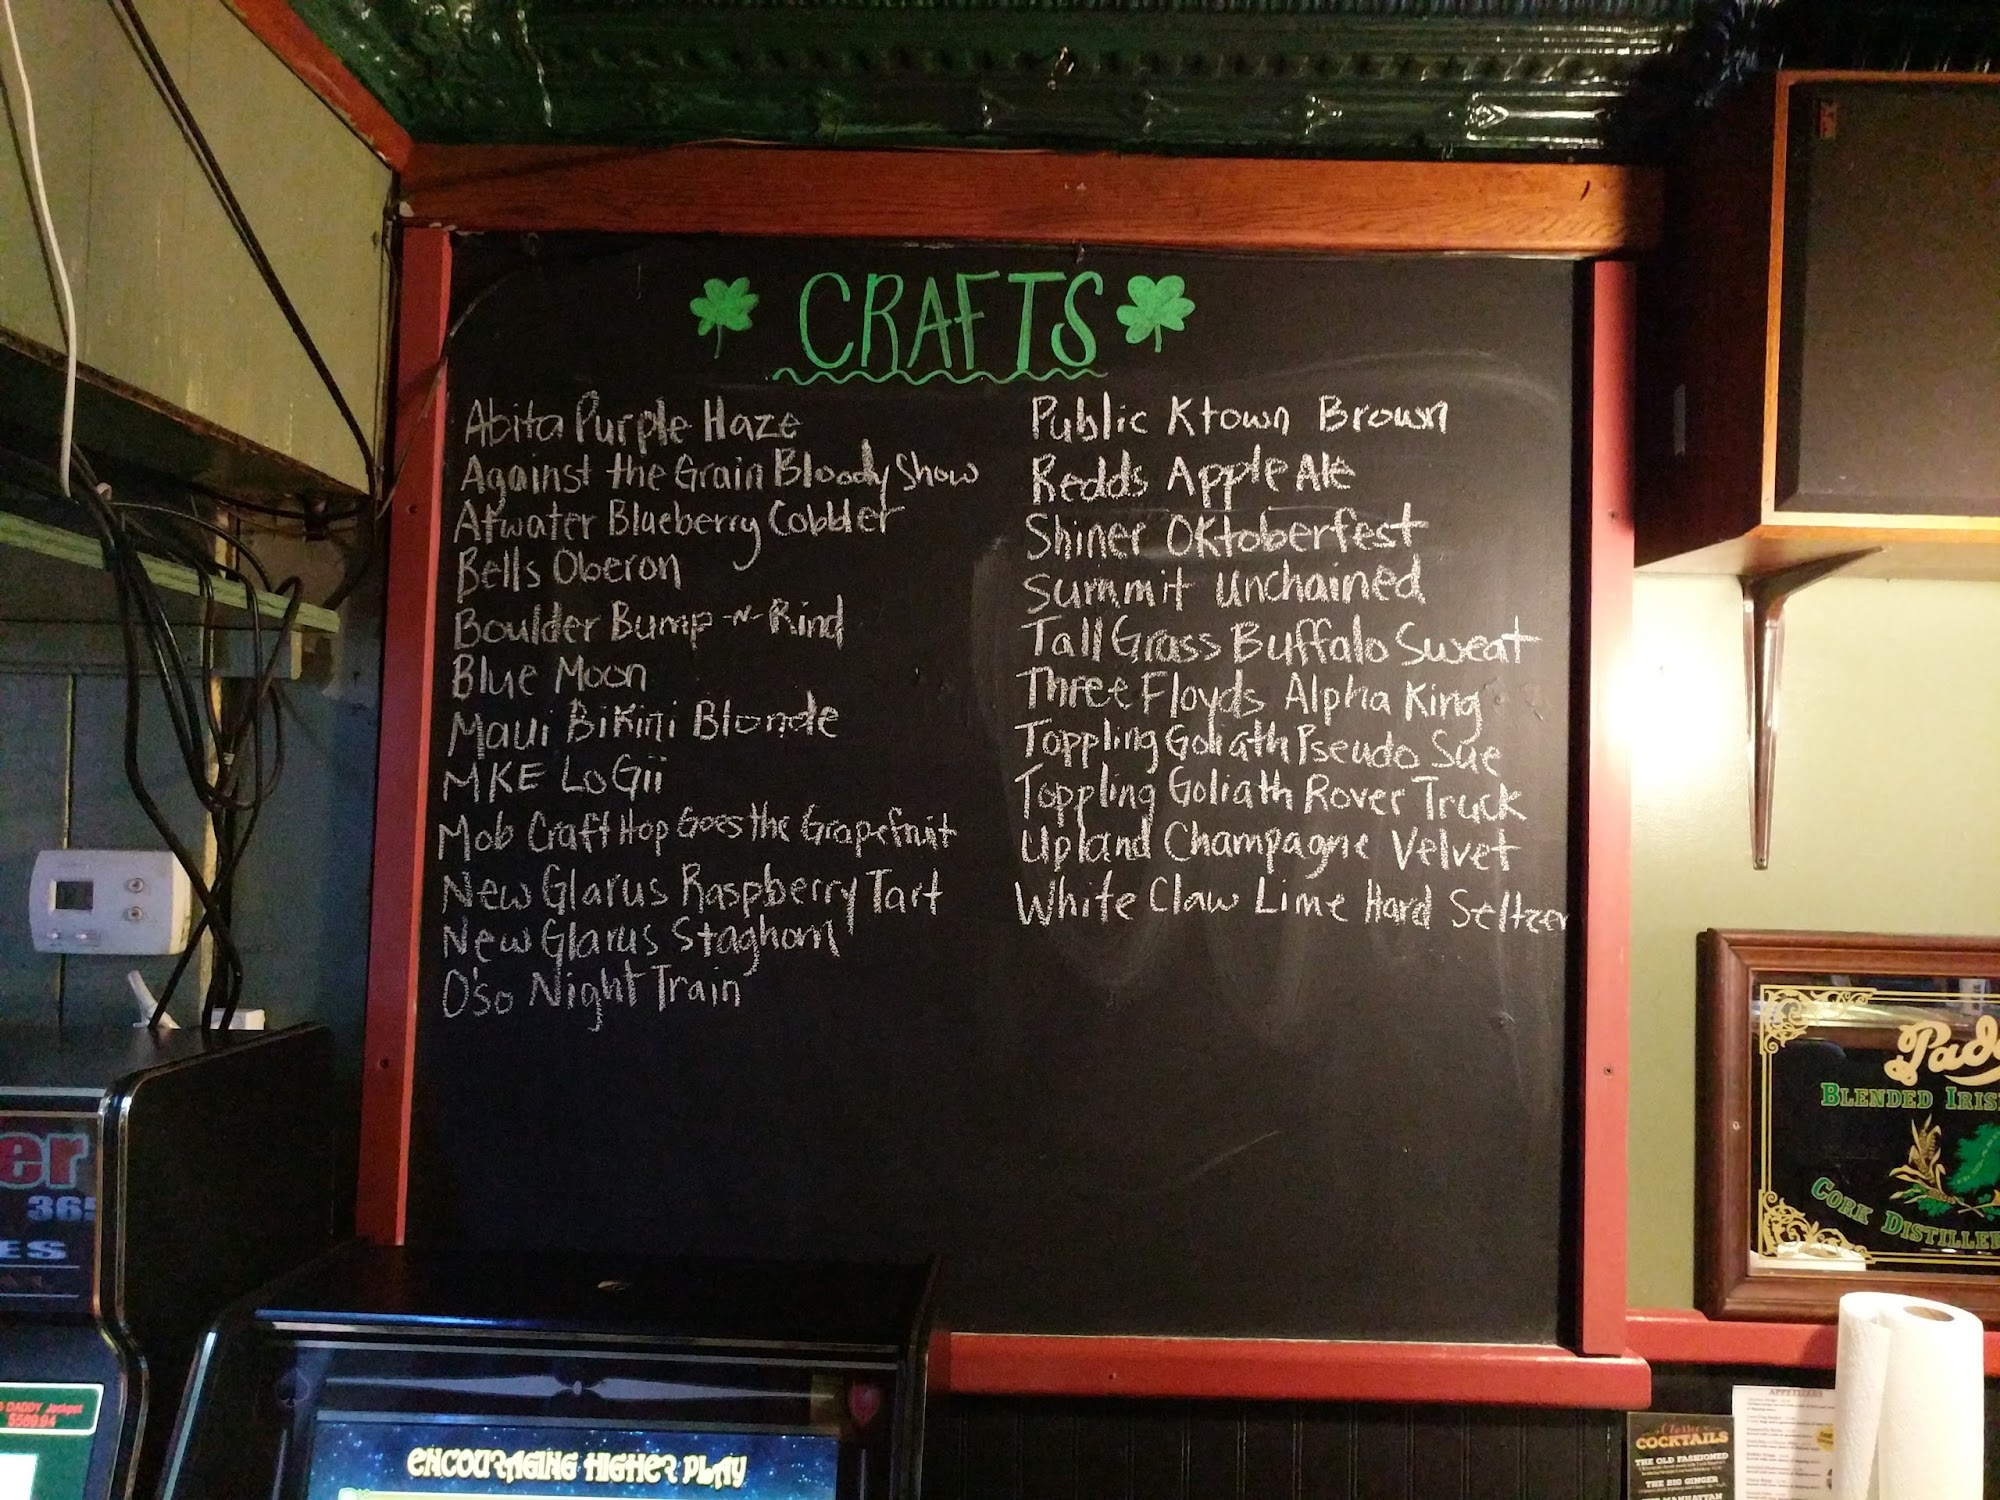 CRAFTS
Abita Purple Haze
Against the Grain Bloody Show
Atwater Blueberry Cobbler
Bells Oberon
Boulder Bump-N-Rind
Blue Moon
Maui Bikini Blonde
MKE LoGii
Mob Craft Hop Goes the Grapefruit
New Glarus Raspberry Tart
New Glarus Staghorn
O'so Night Train
Public Ktown Brown
Redds Apple Ale
Shiner Oktoberfest
Summit Unchained
Tall Grass Buffalo Sweat
Three Floyds Alpha King
Toppling Goliath Pseudo Sue
Toppling Goliath Rover Truck
Upland Champagne Velvet
White Claw Lime Hard Seltzer
er
365
ES
DADDY Jackpot
$589.94
ENCOURAGING HIGHER PLAY
Pad
BLENDED IRIS
CORK DISTILLER
APPETIZERS
COCKTAILS
THE OLD FASHIONED
THE BIG GINGER
MANHATTAN